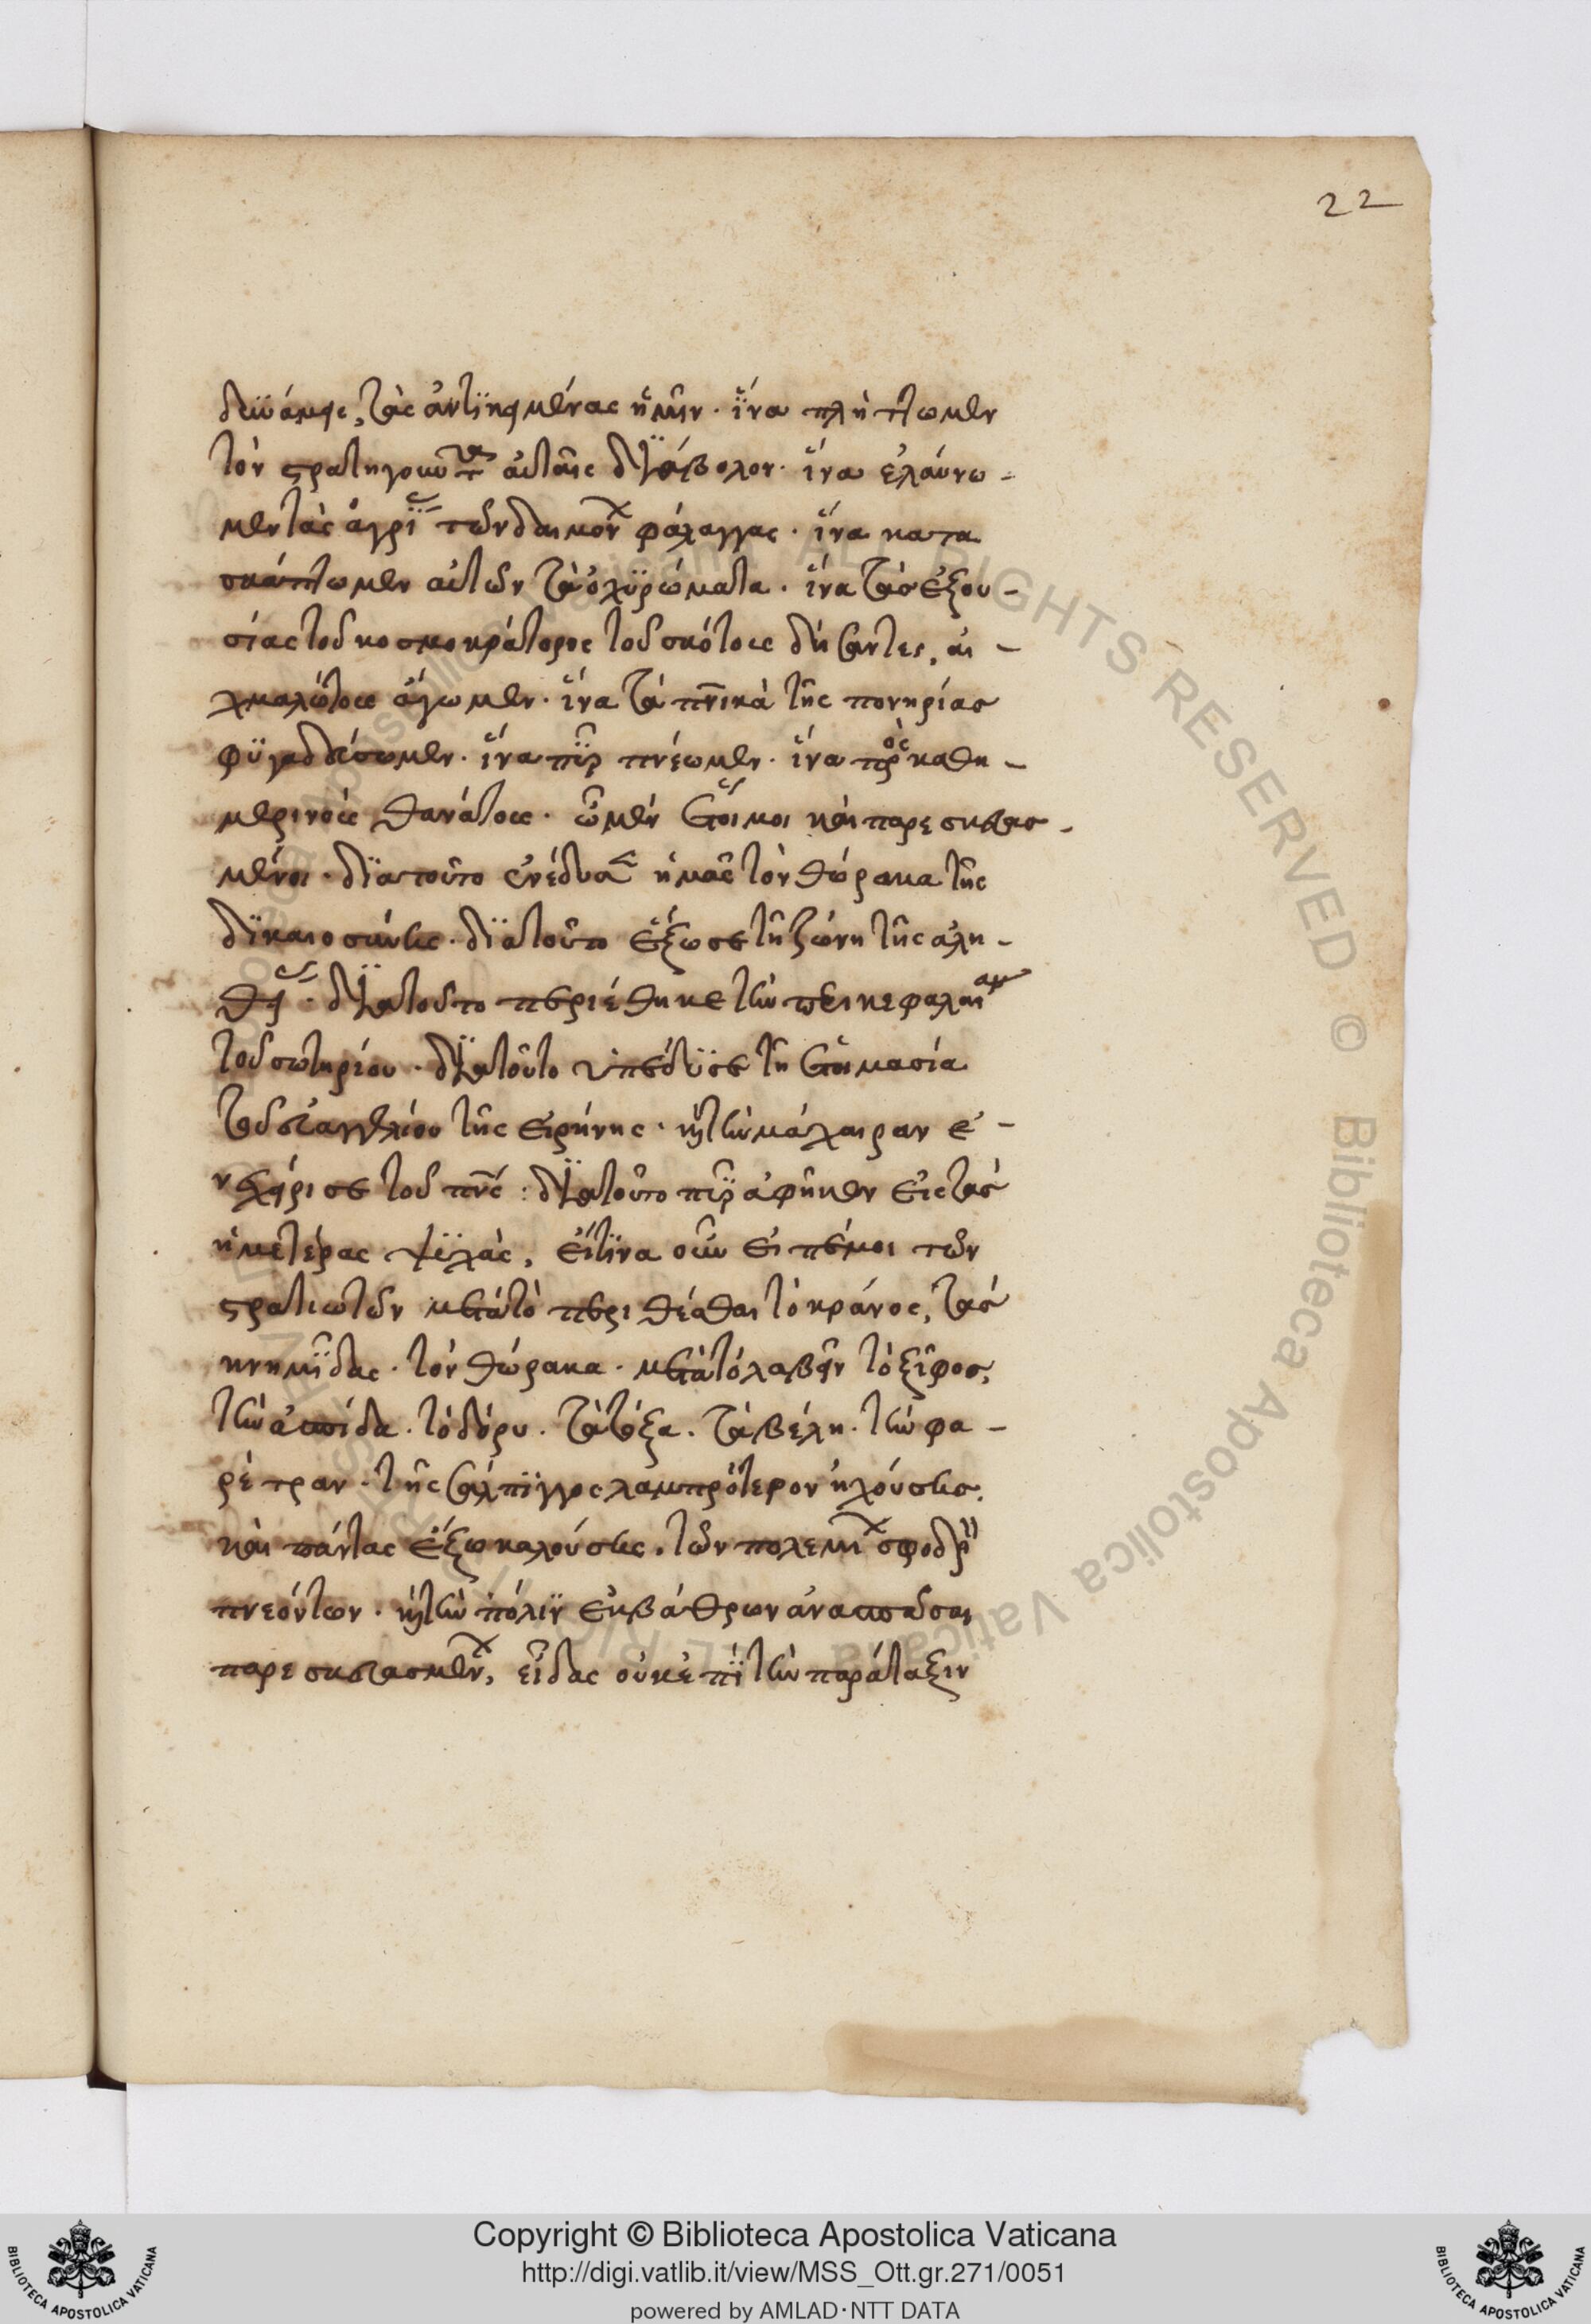 22
δυνάμεις, τὰς ἀντικειμένας ἡμῖν · ἵνα πλήττωμεν
τὸν στρατηγοῦντα αὐταῖς διάβολον · ἵνα ἐλαύνω -
μεν τὰς ἀγρίας τῶν δαιμόνων φάλαγγας · ἵνα κατα
σκάπτωμεν αὐτῶν τὰ ὀχυρώματα · ἵνα τὰσ ἐξου -
σίας τοῦ κοσμοκράτορος τοῦ σκότους δήσαντες, αἰ -
χμαλώτους ἄγωμεν · ἵνα τὰ πν̅ικὰ τῆς πονηρίασ
φυγαδεύσωμεν · ἵνα πῦρ πνέωμεν · ἵνα πρὸς καθη -
μερινοὺς θανάτους · ὦμεν ἕτοιμοι καὶ παρεσκευασ -
μένοι · διατοῦτο ἐνέδυσεν ἡμᾶς τὸν θώρακα τῆς
δικαιοσύνης · διατοῦτο ἔζωσε τῇ ζώνῃ τῆς ἀλη -
θείας · διατοῦτο περιέθηκε τὴν περικεφαλαίαν
τοῦ σωτηρίου · διατοῦτο ὑπέδυσε τῇ ἑτοιμασία
τοῦ εὐαγγελίου τῆς εἰρήνης · καὶ τὴν μάχαιραν ἐ -
νεχείρισε τοῦ πν̅ς : διατοῦτο πῦρ ἀφῆκεν εἰς τὰσ
ἡμετέρας ψυχὰς, εἴ τινα οὖν εἰπέ μοι τῶν
στρατιωτῶν μετὰ τὸ περιθέσθαι τὸ κράνος, τὰσ
κνημῖδας · τὸν θώρακα · μετὰ τὸ λαβεῖν τὸ ξίφοσ,
τὴν ἀσπίδα · τὸ δόρυ · τὰ τόξα · τὰ βέλη · τὴν φα -
ρέτραν · τῆς σάλπιγγος λαμπρότερον ἠχούσησ,
καὶ πάντας ἔξω καλούσης, τῶν πολεμίων σφοδρῶς
πνεόντων · καὶ τὴν πόλιν ἐκ βάθρων ἀνασπάσαι
παρεσκευασμένων, εἶδας οὐκ ἐπὶ τὴν παράταξιν
Copyright © Biblioteca Apostolica Vaticana
http://digi.vatlib.it/view/MSS_Ott.gr.271/0051
powered by AMLAD·NTT DATA